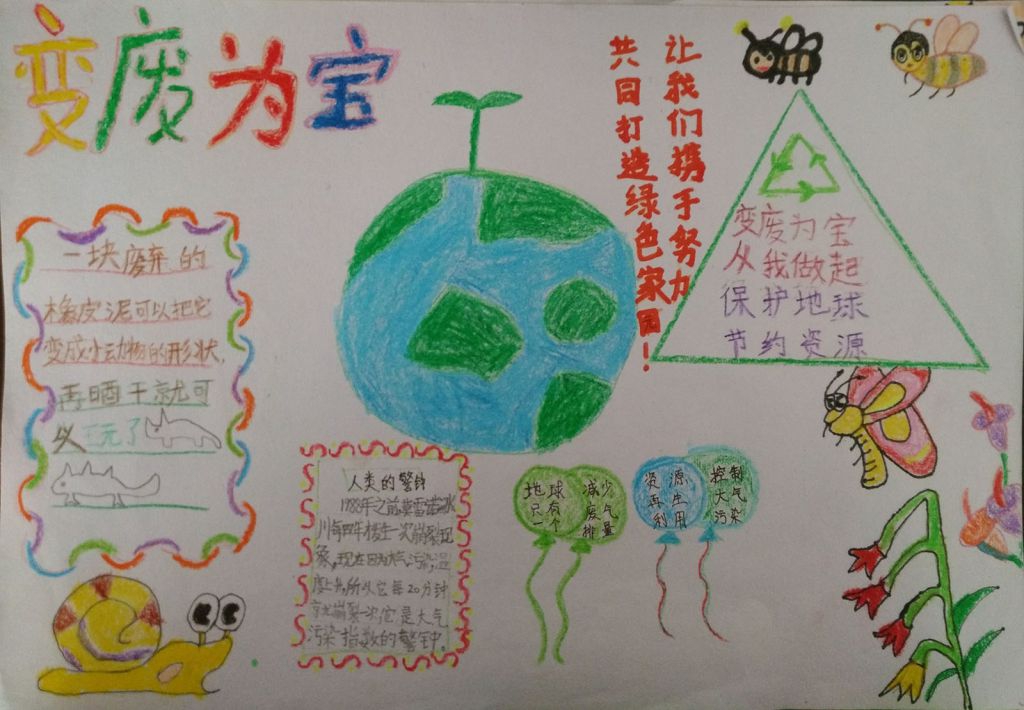 变废为宝
让我们携手努力
共同打造绿色家园！
变废为宝
从我做起
保护地球
节约资源
一块废弃的
橡皮泥可以把它
变成小动物的形状，
再晒干就可
以玩了
人类的警钟
1988年之前莫雷诺冰
川每四年发生一次崩裂现
象，现在因为大气污染，温
度上升，所以它每20分钟
就崩裂一次它是大气
污染指数的警钟。
地球
只有
一个
减少
废气
排量
资源
再生
利用
控制
大气
污染